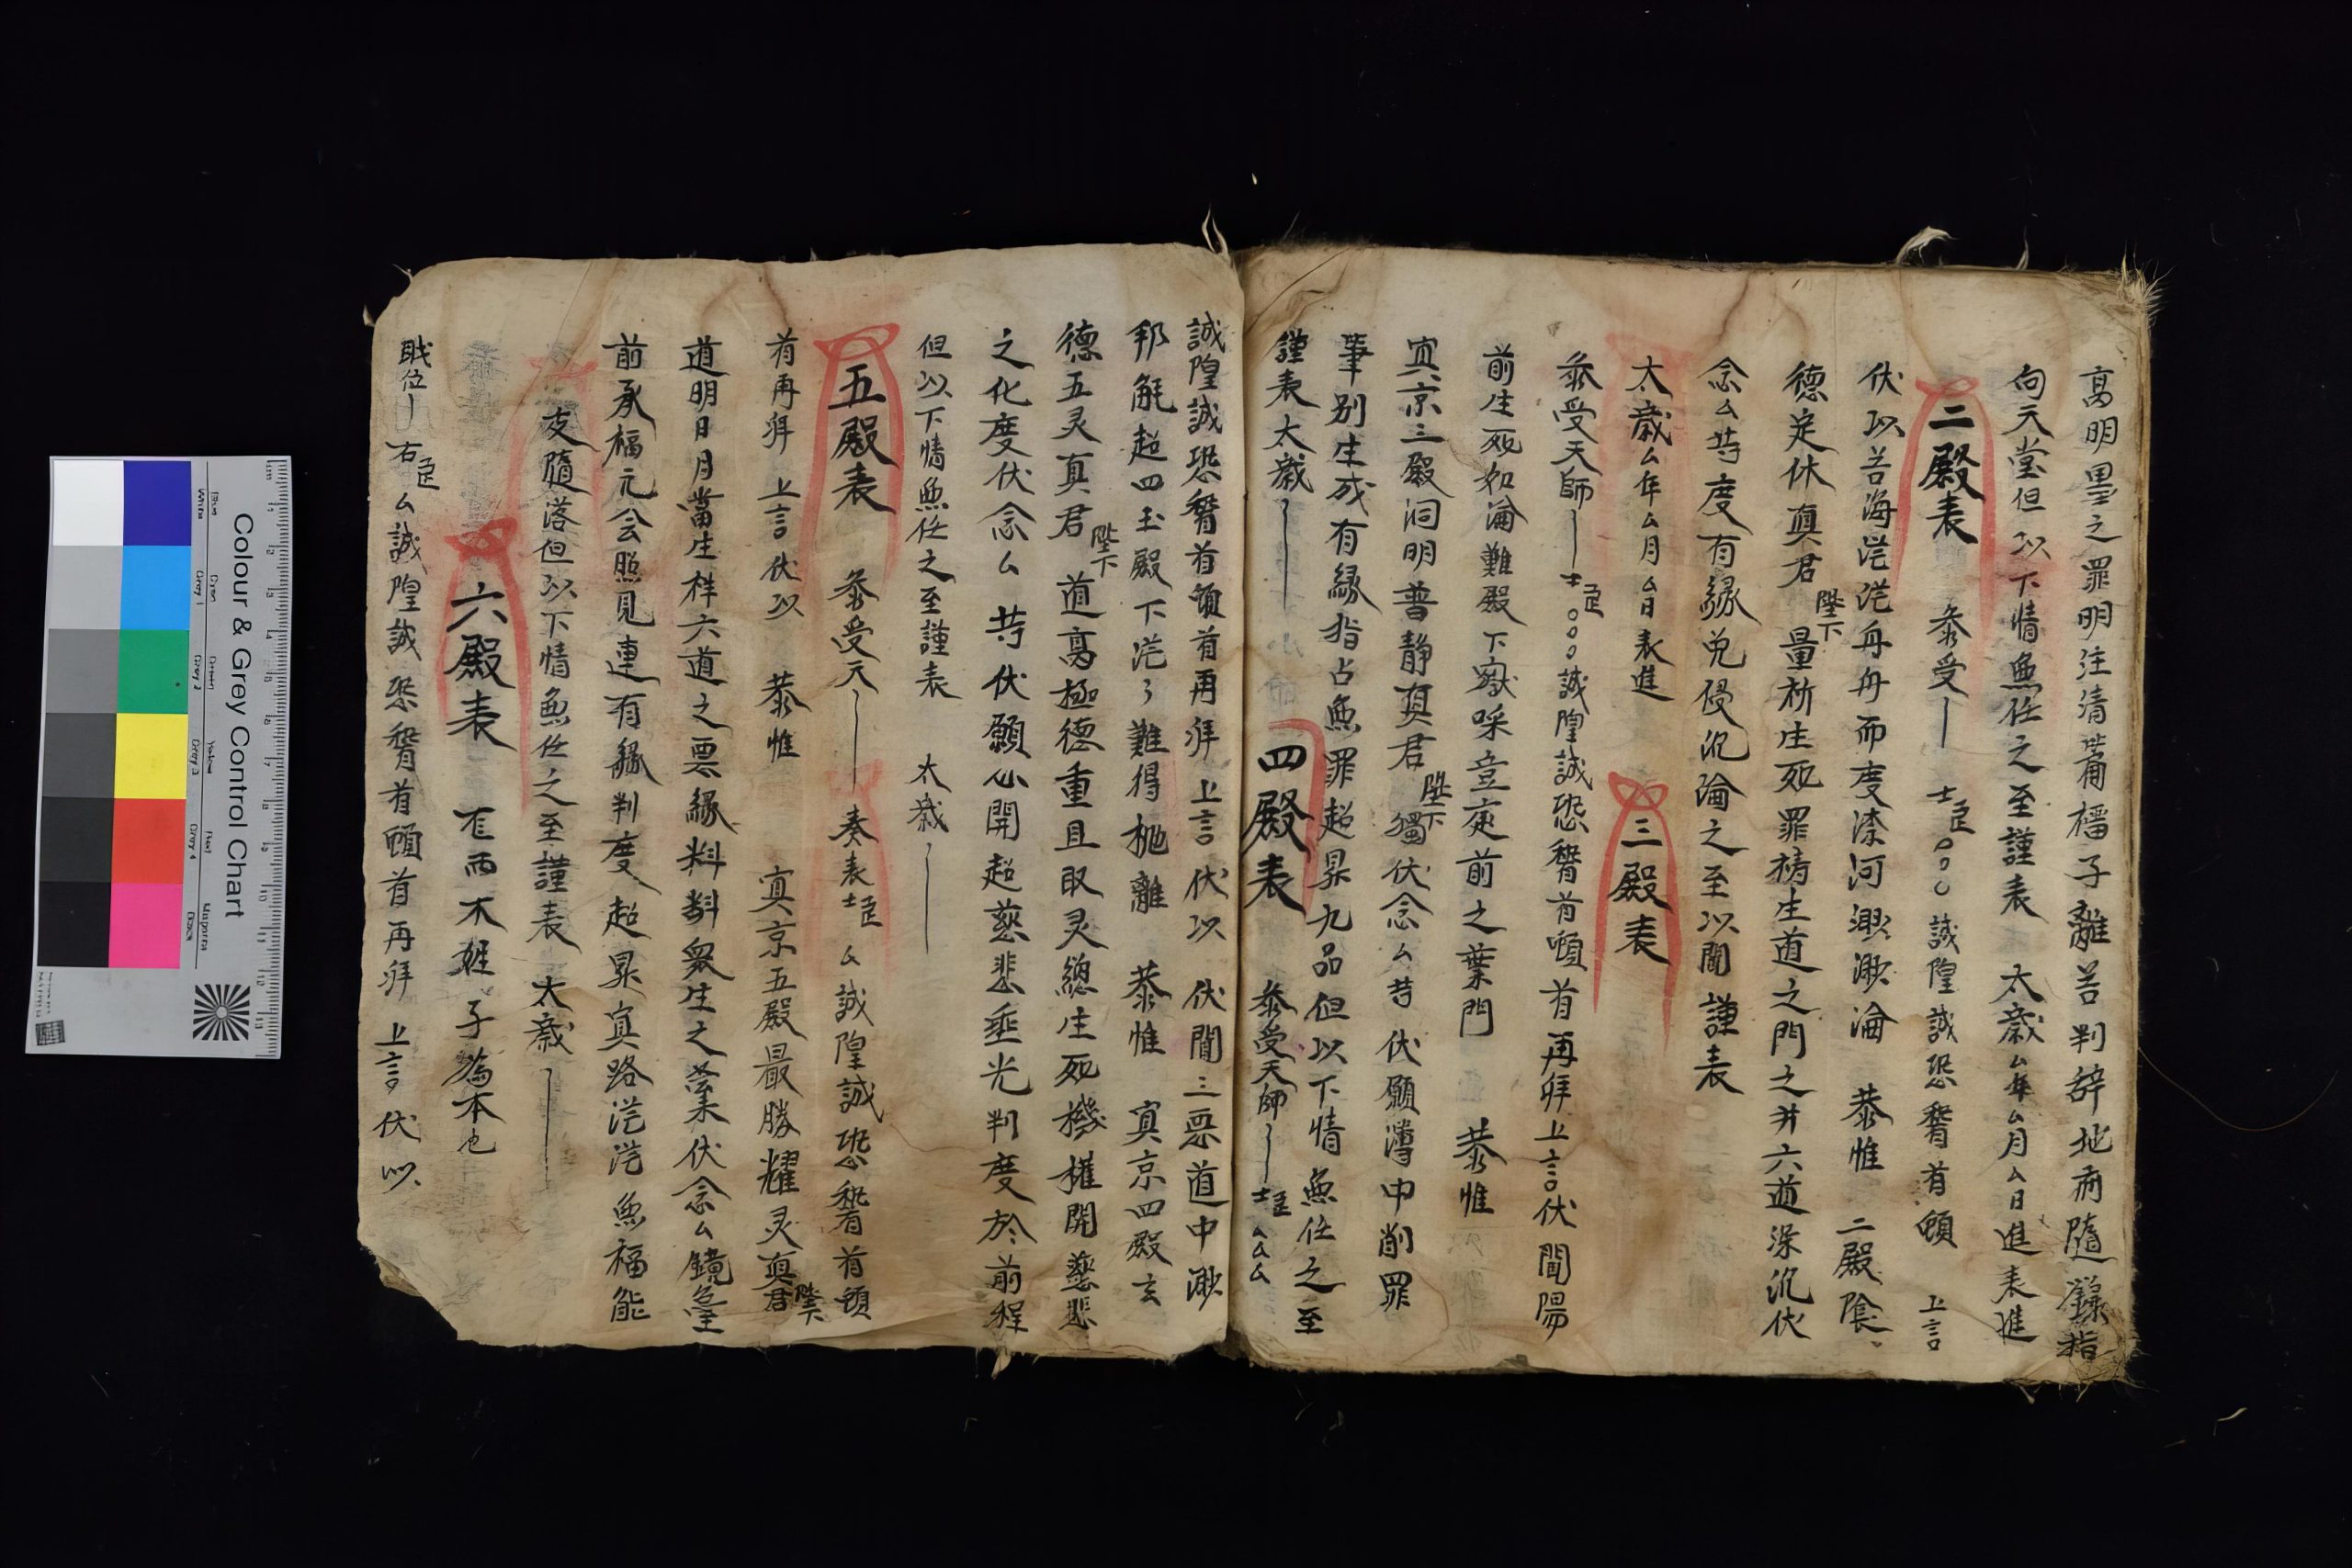 高明墨之罪明注清蕳樯子離苦判辞地府隨錄指
向天堂但以下情無任之至謹表 太歲厶年厶月厶日進表進
二殿表 叅受 士臣 誠隍誠恐稽首頓 上言
伏以苦海茫茫舟舟而度渿河渺渺淪 恭惟 二殿陰
德定休真君陛下 量析生死罪梼生道之門之并六道深沉伏
念厶苻度有緣免侵沉淪之至以聞謹表
太歲厶年厶月厶日表進 三殿表
叅受天師 士臣 誠隍誠恐稽首頓首再拜上言伏聞陽
前生死如淪難殿下嶽啋豈庭前之葉門 恭惟
冥京三殿洞明普靜真君陛下 獨伏念厶苻伏願溥中削罪
筆别生成有緣指占無罪超昇九品但以下情無任之至
謹表太歲 四殿表 叅受天師 士臣厶厶厶
誠隍誠恐稽首頓首再拜 上言伏以 伏聞三惡道中渺
邦能超四玉殿下茫々難得拋離 恭惟 冥京四殿玄
德五灵真君陛下 道高極德重且取灵總生死機權開慈悲
之化度伏念厶 苻伏願心開超慈悲垂光判度於前程
但以下情無任之至謹表 太歲
五殿表 叅受天 奏表士臣 厶誠隍誠恐稽首頓
首再拜 上言伏以 恭惟 冥京五殿最勝耀灵真君陛下
道明日月當生样六道之票緣料斠眾生之業伏念厶鏡臺
前承福元会照見連有緣判度超昇冥路茫茫無福能
支隨落但以下情無任之至謹表 太歲
六殿表 右而不姓子為本也
職位 右臣厶誠隍誠恐稽首頓首再拜 上言伏以
Colour & Grey Control Chart